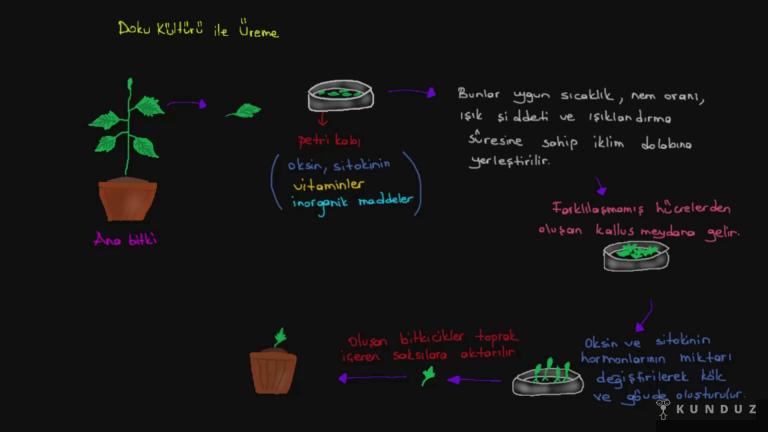 Doku Kültürü ile Üreme
Ana bitki
petri kabı
(oksin, sitokinin
vitaminler
inorganik maddeler)
Bunlar uygun sıcaklık, nem oranı,
ışık şiddeti ve ışıklandırma
süresine sahip iklim dolabına
yerleştirilir.
Farklılaşmamış hücrelerden
oluşan kallus meydana gelir.
Oksin ve sitokinin
hormonlarının miktarı
değiştirilerek kök
ve gövde oluşturulur.
Oluşan bitkicikler toprak
içeren saksılara aktarılır
KUNDUZ